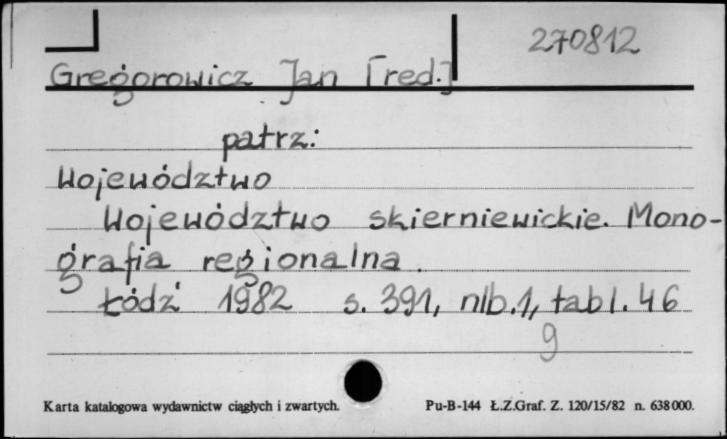 270812
Gregorowicz Jan [red.]
patrz:
Województwo
Województwo skierniewickie. Mono-
grafia regionalna.
Łódź 1982 s. 391, nlb.1, tabl. 46
9
Karta katalogowa wydawnictw ciągłych i zwartych. Pu-B-144 Ł.Z.Graf. Z. 120/15/82 n. 638000.